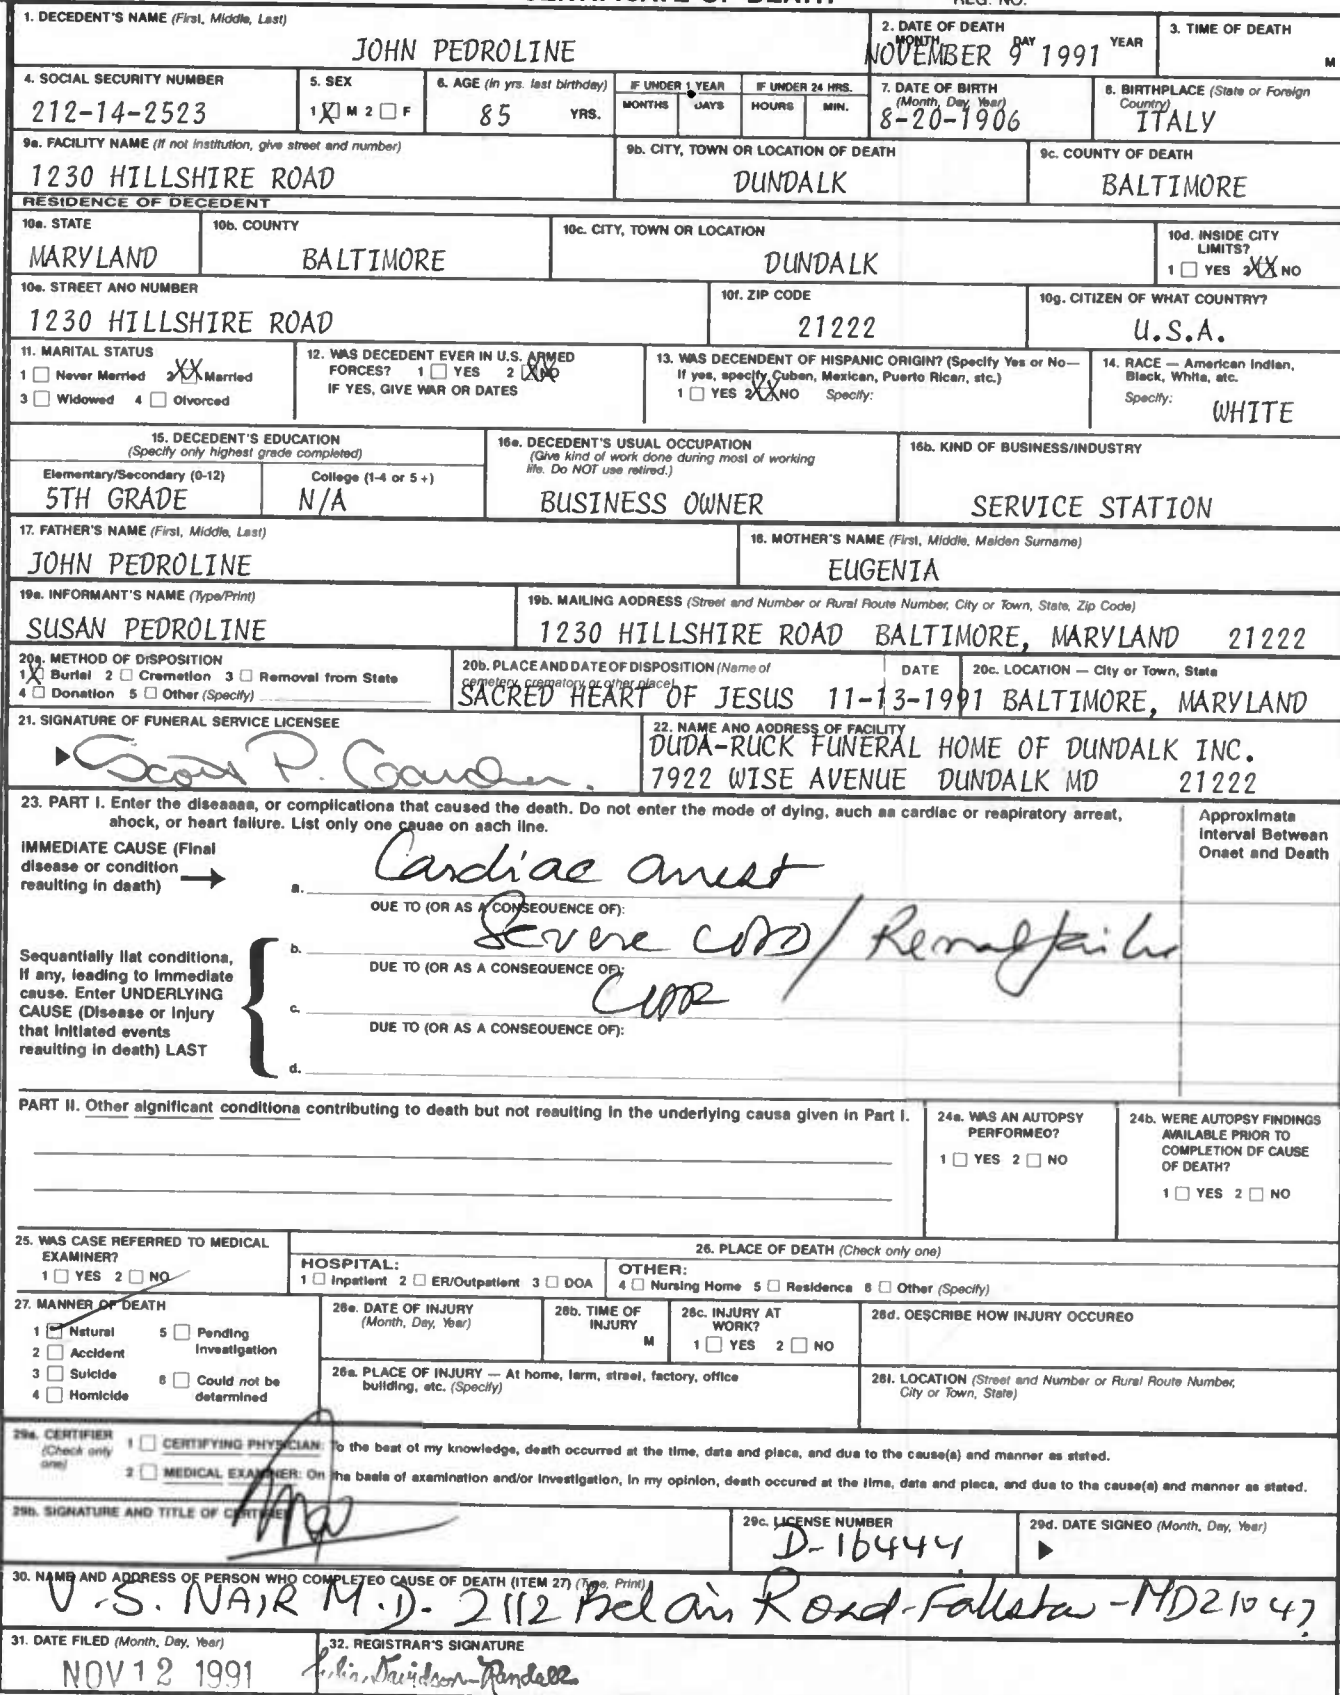 1. DECEDENT'S NAME (First, Middle, Last)
JOHN PEDROLINE
2. DATE OF DEATH
MONTH DAY YEAR
NOVEMBER 9 1991
3. TIME OF DEATH
M
4. SOCIAL SECURITY NUMBER
212-14-2523
5. SEX
1 X M 2 ☐ F
6. AGE (In yrs. last birthday)
85 YRS.
IF UNDER 1 YEAR
MONTHS DAYS
IF UNDER 24 HRS.
HOURS MIN.
7. DATE OF BIRTH
(Month, Day, Year)
8-20-1906
8. BIRTHPLACE (State or Foreign
Country)
ITALY
9a. FACILITY NAME (If not institution, give street and number)
1230 HILLSHIRE ROAD
9b. CITY, TOWN OR LOCATION OF DEATH
DUNDALK
9c. COUNTY OF DEATH
BALTIMORE
RESIDENCE OF DECEDENT
10a. STATE
MARYLAND
10b. COUNTY
BALTIMORE
10c. CITY, TOWN OR LOCATION
DUNDALK
10d. INSIDE CITY
LIMITS?
1 ☐ YES 2 XX NO
10e. STREET AND NUMBER
1230 HILLSHIRE ROAD
10f. ZIP CODE
21222
10g. CITIZEN OF WHAT COUNTRY?
U.S.A.
11. MARITAL STATUS
1 ☐ Never Married 2 XX Married
3 ☐ Widowed 4 ☐ Divorced
12. WAS DECEDENT EVER IN U.S. ARMED
FORCES? 1 ☐ YES 2 XX NO
IF YES, GIVE WAR OR DATES
13. WAS DECENDENT OF HISPANIC ORIGIN? (Specify Yes or No—
If yes, specify Cuban, Mexican, Puerto Rican, etc.)
1 ☐ YES 2 XX NO Specify:
14. RACE — American Indian,
Black, White, etc.
Specify: WHITE
15. DECEDENT'S EDUCATION
(Specify only highest grade completed)
Elementary/Secondary (0-12)
5TH GRADE
College (1-4 or 5+)
N/A
16a. DECEDENT'S USUAL OCCUPATION
(Give kind of work done during most of working
life. Do NOT use retired.)
BUSINESS OWNER
16b. KIND OF BUSINESS/INDUSTRY
SERVICE STATION
17. FATHER'S NAME (First, Middle, Last)
JOHN PEDROLINE
18. MOTHER'S NAME (First, Middle, Maiden Surname)
EUGENIA
19a. INFORMANT'S NAME (Type/Print)
SUSAN PEDROLINE
19b. MAILING ADDRESS (Street and Number or Rural Route Number, City or Town, State, Zip Code)
1230 HILLSHIRE ROAD BALTIMORE, MARYLAND 21222
20a. METHOD OF DISPOSITION
1 X Burial 2 ☐ Cremation 3 ☐ Removal from State
4 ☐ Donation 5 ☐ Other (Specify)
20b. PLACE AND DATE OF DISPOSITION (Name of
cemetery, crematory or other place) DATE
SACRED HEART OF JESUS 11-13-1991
20c. LOCATION — City or Town, State
BALTIMORE, MARYLAND
21. SIGNATURE OF FUNERAL SERVICE LICENSEE
Scott P. Gardner
22. NAME AND ADDRESS OF FACILITY
DUDA-RUCK FUNERAL HOME OF DUNDALK INC.
7922 WISE AVENUE DUNDALK MD 21222
23. PART I. Enter the diseases, or complications that caused the death. Do not enter the mode of dying, such as cardiac or respiratory arrest,
shock, or heart failure. List only one cause on each line.
Approximate
Interval Between
Onset and Death
IMMEDIATE CAUSE (Final
disease or condition
resulting in death)
a. Cardiac arrest
DUE TO (OR AS A CONSEQUENCE OF):
Sequentially list conditions,
if any, leading to immediate
cause. Enter UNDERLYING
CAUSE (Disease or injury
that initiated events
resulting in death) LAST
b. Severe / Renal failure
DUE TO (OR AS A CONSEQUENCE OF):
c.
DUE TO (OR AS A CONSEQUENCE OF):
d.
PART II. Other significant conditions contributing to death but not resulting in the underlying cause given in Part I.
24a. WAS AN AUTOPSY
PERFORMED?
1 ☐ YES 2 ☐ NO
24b. WERE AUTOPSY FINDINGS
AVAILABLE PRIOR TO
COMPLETION OF CAUSE
OF DEATH?
1 ☐ YES 2 ☐ NO
25. WAS CASE REFERRED TO MEDICAL
EXAMINER?
1 ☐ YES 2 ☐ NO
26. PLACE OF DEATH (Check only one)
HOSPITAL:
1 ☐ Inpatient 2 ☐ ER/Outpatient 3 ☐ DOA
OTHER:
4 ☐ Nursing Home 5 ☐ Residence 6 ☐ Other (Specify)
27. MANNER OF DEATH
1 ☑ Natural 5 ☐ Pending
Investigation
2 ☐ Accident
3 ☐ Suicide 6 ☐ Could not be
determined
4 ☐ Homicide
28a. DATE OF INJURY
(Month, Day, Year)
28b. TIME OF
INJURY
M
28c. INJURY AT
WORK?
1 ☐ YES 2 ☐ NO
28d. DESCRIBE HOW INJURY OCCURED
28e. PLACE OF INJURY — At home, farm, street, factory, office
building, etc. (Specify)
28f. LOCATION (Street and Number or Rural Route Number,
City or Town, State)
29a. CERTIFIER
(Check only
one)
1 ☐ CERTIFYING PHYSICIAN: To the best of my knowledge, death occurred at the time, date and place, and due to the cause(s) and manner as stated.
2 ☐ MEDICAL EXAMINER: On the basis of examination and/or investigation, in my opinion, death occured at the time, date and place, and due to the cause(s) and manner as stated.
29b. SIGNATURE AND TITLE OF CERTIFIER
29c. LICENSE NUMBER
D-16444
29d. DATE SIGNED (Month, Day, Year)
30. NAME AND ADDRESS OF PERSON WHO COMPLETED CAUSE OF DEATH (ITEM 27) (Type, Print)
V.S. NAIR M.D. 2112 Bel air Road-Fallston-MD21047
31. DATE FILED (Month, Day, Year)
NOV 12 1991
32. REGISTRAR'S SIGNATURE
Davidson-Randall